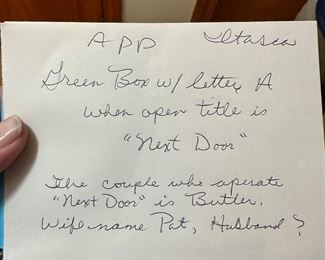 APP Itasca
Green Box w/ letter A
when open title is
"Next Door"
The couple who operate
"Next Door" is Butler.
Wife name Pat, Husband ?